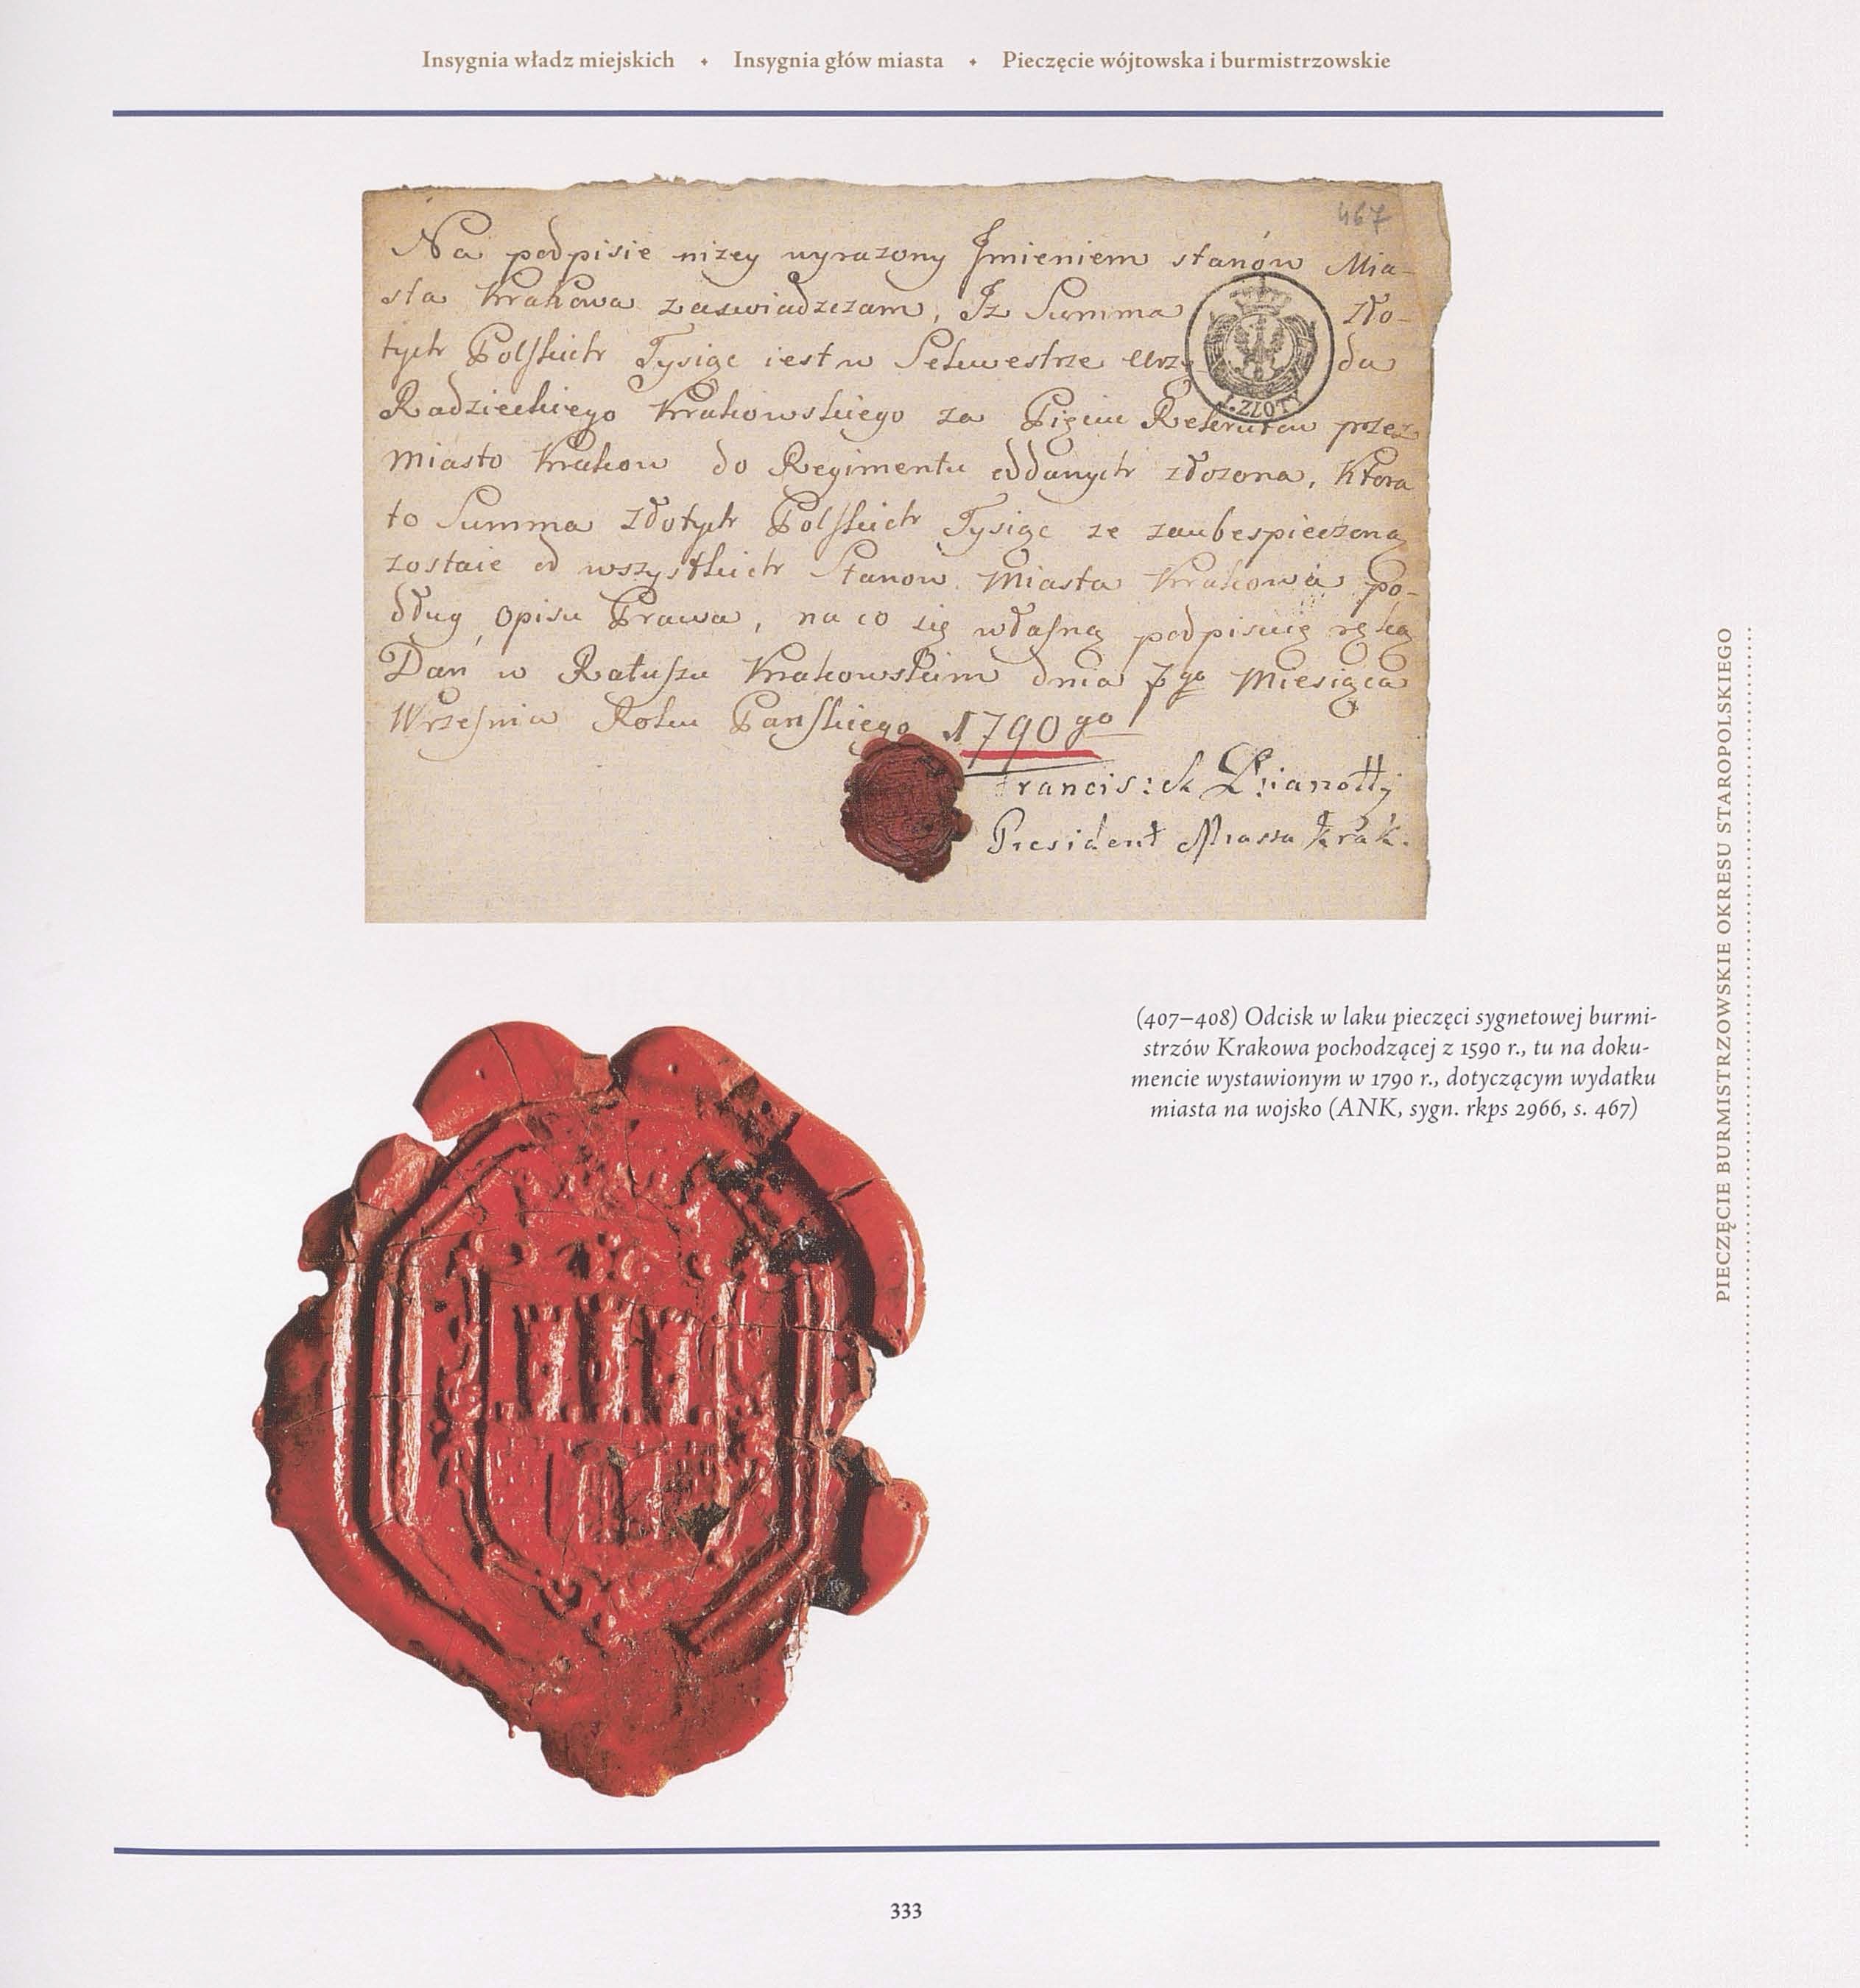 Insygnia władz miejskich ✦ Insygnia głów miasta ✦ Pieczęcie wójtowska i burmistrzowskie
467
Na podpisie nizey wyrazony Jmieniem stanów Mia-
sta Krakowa zaswiadczam, Jz Summa zło-
tych Polskich Tysiąc iest w Sekwestrze Urzędu
Radzieckiego Krakowskiego za Pięciu Rekrutow przez
Miasto Krakow do Regimentu oddanych złozona, Ktora
to Summa złotych Polskich Tysiąc ze zaubespieczoną
zostaie od wszystkich Stanow Miasta Krakowa po-
dług opisu Prawa, na co się własną podpisuię ręką
Dan w Ratuszu Krakowskim dnia 7go Miesiąca
Wrzesnia Roku Pańskiego 1790go
1. ZŁOTY
Franciszek
President Miasta Krak.
(407–408) Odcisk w laku pieczęci sygnetowej burmi-
strzów Krakowa pochodzącej z 1590 r., tu na doku-
mencie wystawionym w 1790 r., dotyczącym wydatku
miasta na wojsko (ANK, sygn. rkps 2966, s. 467)
PIECZĘCIE BURMISTRZOWSKIE OKRESU STAROPOLSKIEGO
333